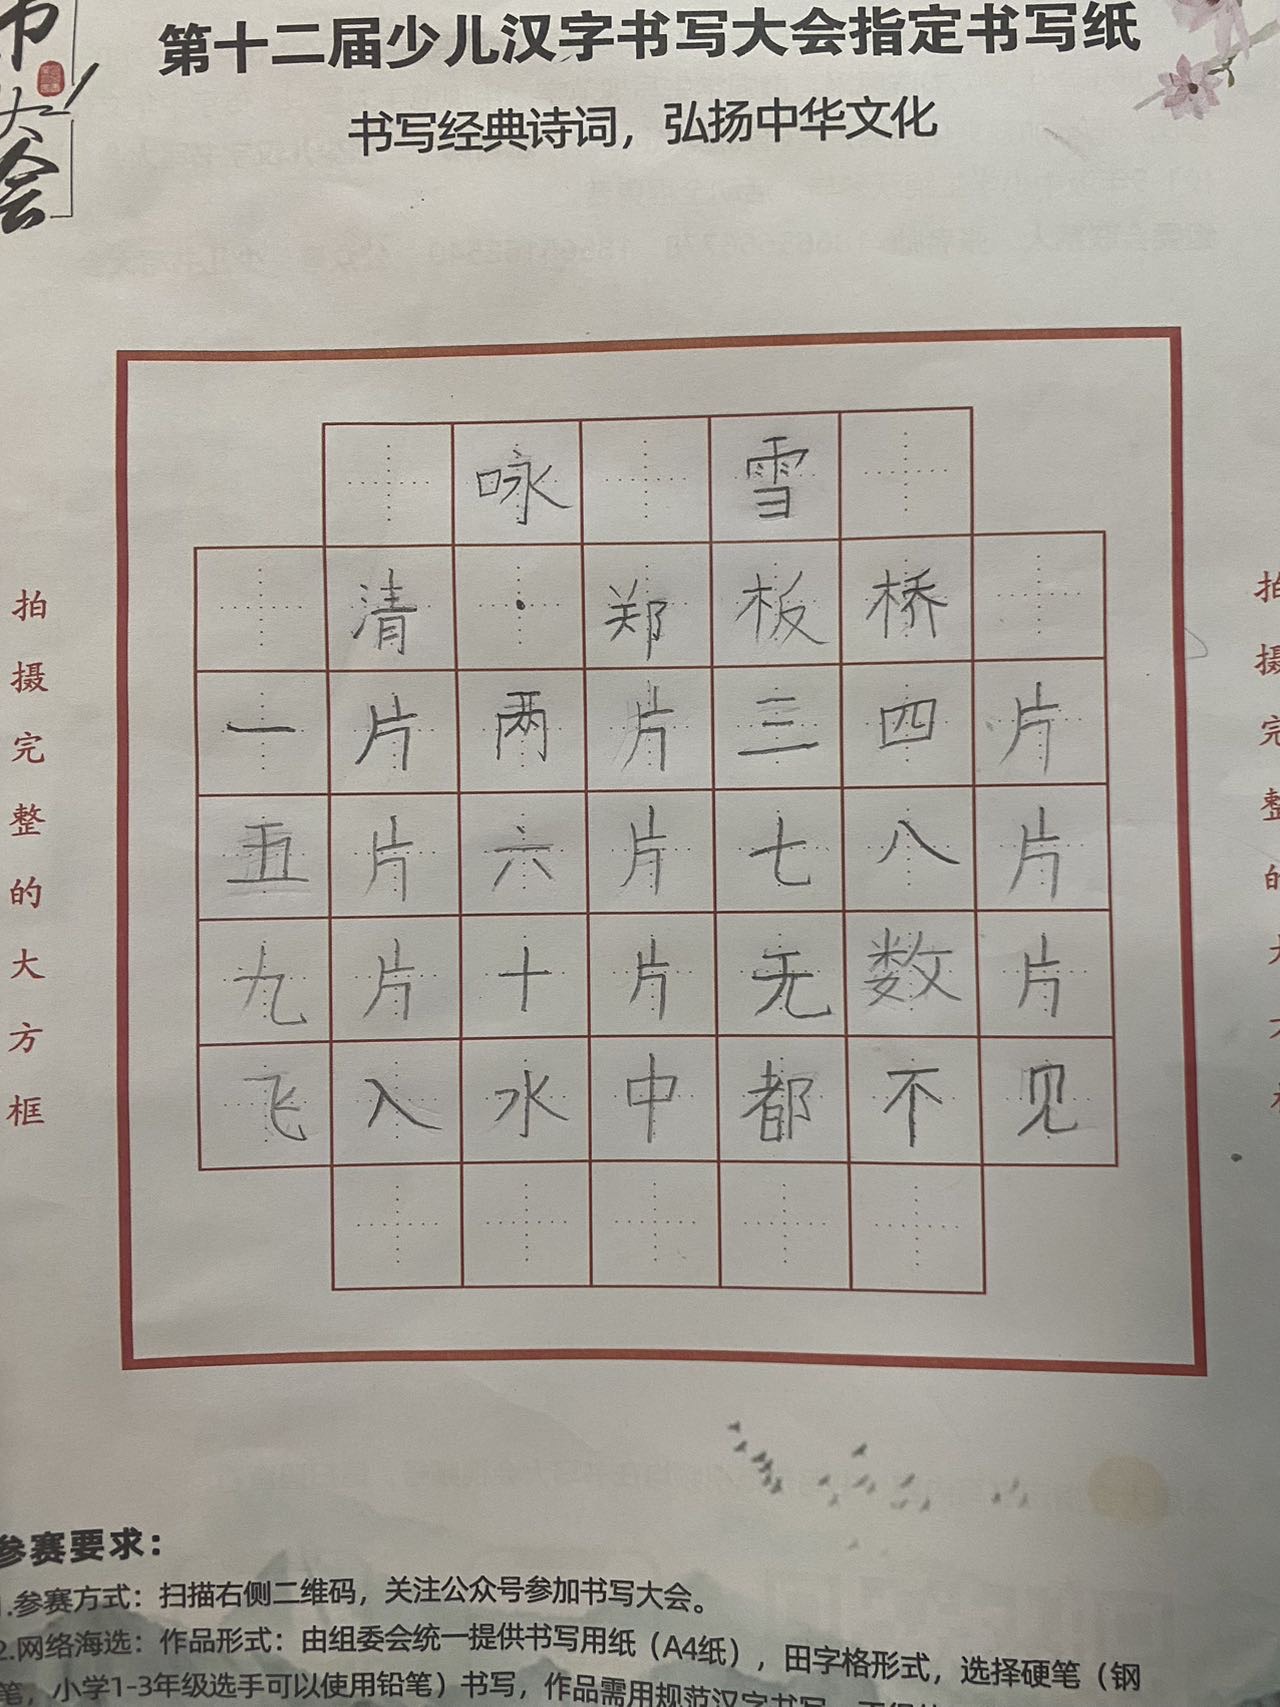 第十二届少儿汉字书写大会指定书写纸
书写经典诗词，弘扬中华文化
大会
咏雪
清·郑板桥
一片两片三四片
五片六片七八片
九片十片无数片
飞入水中都不见
拍摄完整的大方框
参赛要求：
1.参赛方式：扫描右侧二维码，关注公众号参加书写大会。
2.网络海选：作品形式：由组委会统一提供书写用纸（A4纸），田字格形式，选择硬笔（钢
笔，小学1-3年级选手可以使用铅笔）书写，作品需用规范汉字书写